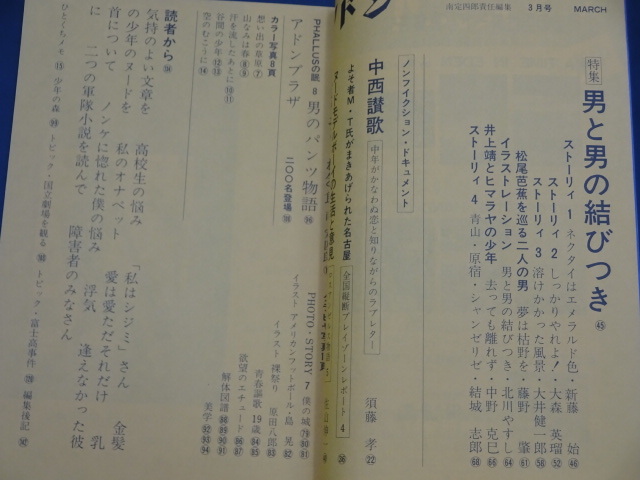 南定四郎責任編集 3月号 MARCH
特集 男と男の結びつき ㊺
ストーリィ 1 ネクタイはエメラルド色・新藤 始 ㊻
ストーリィ 2 しっかりやれよ!・大森 英瑠 52
ストーリィ 3 溶けかかった風景・大井健一郎 56
松尾芭蕉を巡る二人の男 夢は枯野を・藤野 肇 61
イラストレーション 男と男の結びつき・北川やすし 64
井上靖とヒマラヤの少年 去っても離れず・中野 克巳 66
ストーリィ 4 青山・原宿・シャンゼリゼ・結城 志郎 68
ノンフィクション・ドキュメント
中西讃歌 中年がかなわぬ恋と知りながらのラブレター 須藤 孝 ㉒
よそ者M・T氏がまきあげられた名古屋 全国縦断プレイゾーンレポート 4 ㊱
ドン
PHALLUSの眼 8 男のパンツ物語
アドンプラザ 二〇〇名登場
PHOTO・STORY 7 僕の城 79 80 81
カラー写真8頁
思い出の草原 ⑦
山なみは春 ⑧ ⑨
汗を流したあとに ⑩ ⑪
谷間の少年 ⑫ ⑬
空のむこうに ⑭
イラスト アメリカンフットボール・島 晃 82
イラスト 裸祭り 原田八郎 83
青春謳歌 19歳 84 85
欲望のエチュード 86 87
解体図譜 88 89 90 91
美学 92 93 94
読者から
気持のよい文章を 高校生の悩み 「私はシジミ」さん 金髪
の少年のヌードを 私のオナペット 愛は愛ただそれだけ 乳
首について ノンケに惚れた僕の悩み 浮気 逢えなかった彼
に 二つの軍隊小説を読んで 障害者のみなさん
ひとくちメモ ⑮ 少年の森 トピック・国立劇場を観る トピック・富士高事件 編集後記